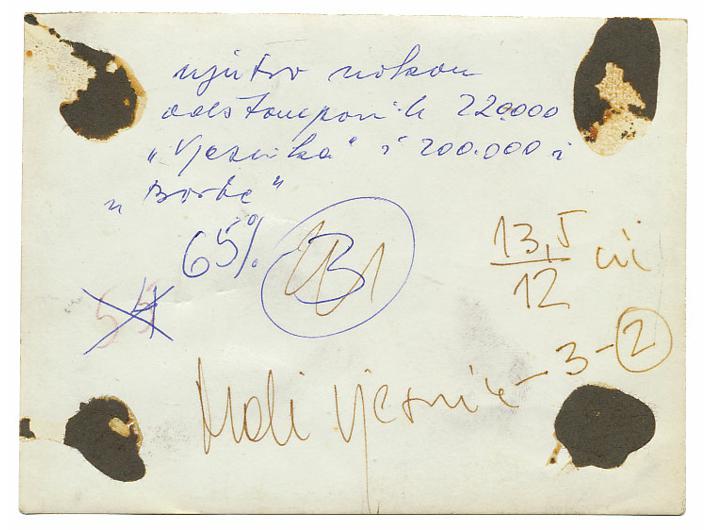 ujutro nakon
odštampanih 220.000
"Vjesnika" i 200.000 i
"Borbe"
65%
B
13,5
12
Mali Vjesnik - 3 - 2